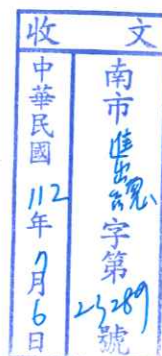 收文
中華民國112年7月6日
南市進出字第25289號